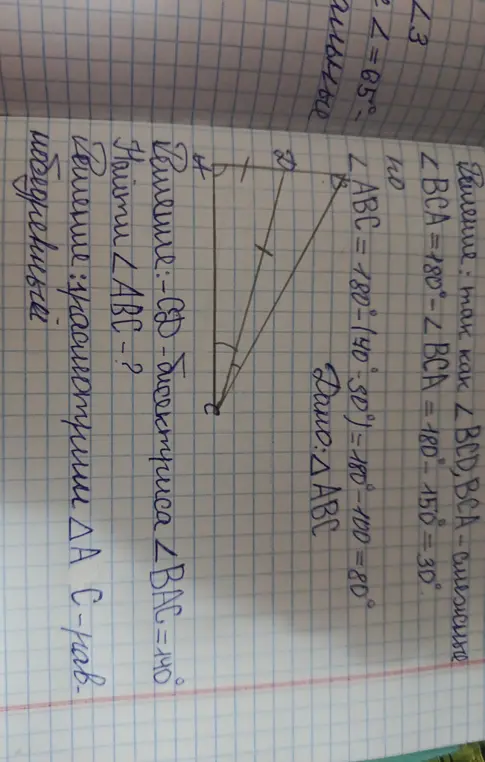 ∠3
∠ = 65°-
Решение: так как ∠BCD, BCA - смежные
∠BCA = 180° - ∠BCA = 180° - 150° = 30°.
но
∠ABC = 180° - (40° 30°) = 180° - 100 = 80°
Дано: △ABC
B
D
A
C
Решение: - CD - биссектриса ∠BAC = 140°
Найти ∠ABC - ?
Решение: рассмотрим △A C - рав-
нобедренный